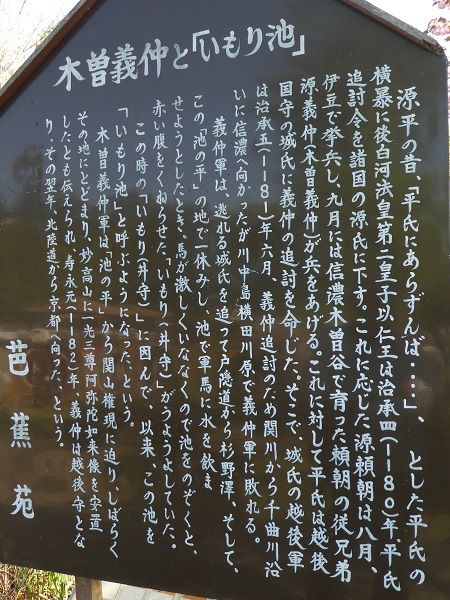 木曽義仲と「いもり池」
源平の昔、「平氏にあらずんば・・・」、とした平氏の
横暴に後白河法皇第二皇子以仁王は治承四(一一八〇)年、平氏
追討令を諸国の源氏に下す。これに応じた源頼朝は八月、
伊豆で挙兵し、九月には信濃木曽谷で育った頼朝の従兄弟
源義仲(木曽義仲)が兵をあげる。これに対して平氏は越後
国守の城氏に義仲の追討を命じた。そこで、城氏の越後軍
は治承五(一一八一)年六月、義仲追討のため関川から千曲川沿
いに信濃へ向かったが川中島横田川原で義仲軍に敗れる。
義仲軍は、逃れる城氏を追って戸隠道から杉野澤、そして、
この「池の平」の地で一休みし、池で軍馬に水を飲ま
せようとしたとき、馬が激しくいななくので池をのぞくと、
赤い腹をくねらせた「いもり(井守)」がうようよしていた。
この時の「いもり(井守)」に因んで、以来、この池を
「いもり池」と呼ぶようになった、という。
木曽義仲軍は「池の平」から関山権現に迫り、しばらく
その地にとどまり、妙高山に一光三尊阿弥陀如来像を安置
したとも伝えられ、寿永元(一一八二)年、義仲は越後守とな
り、その翌年、北陸道から京都へ向った、という。
芭蕉苑